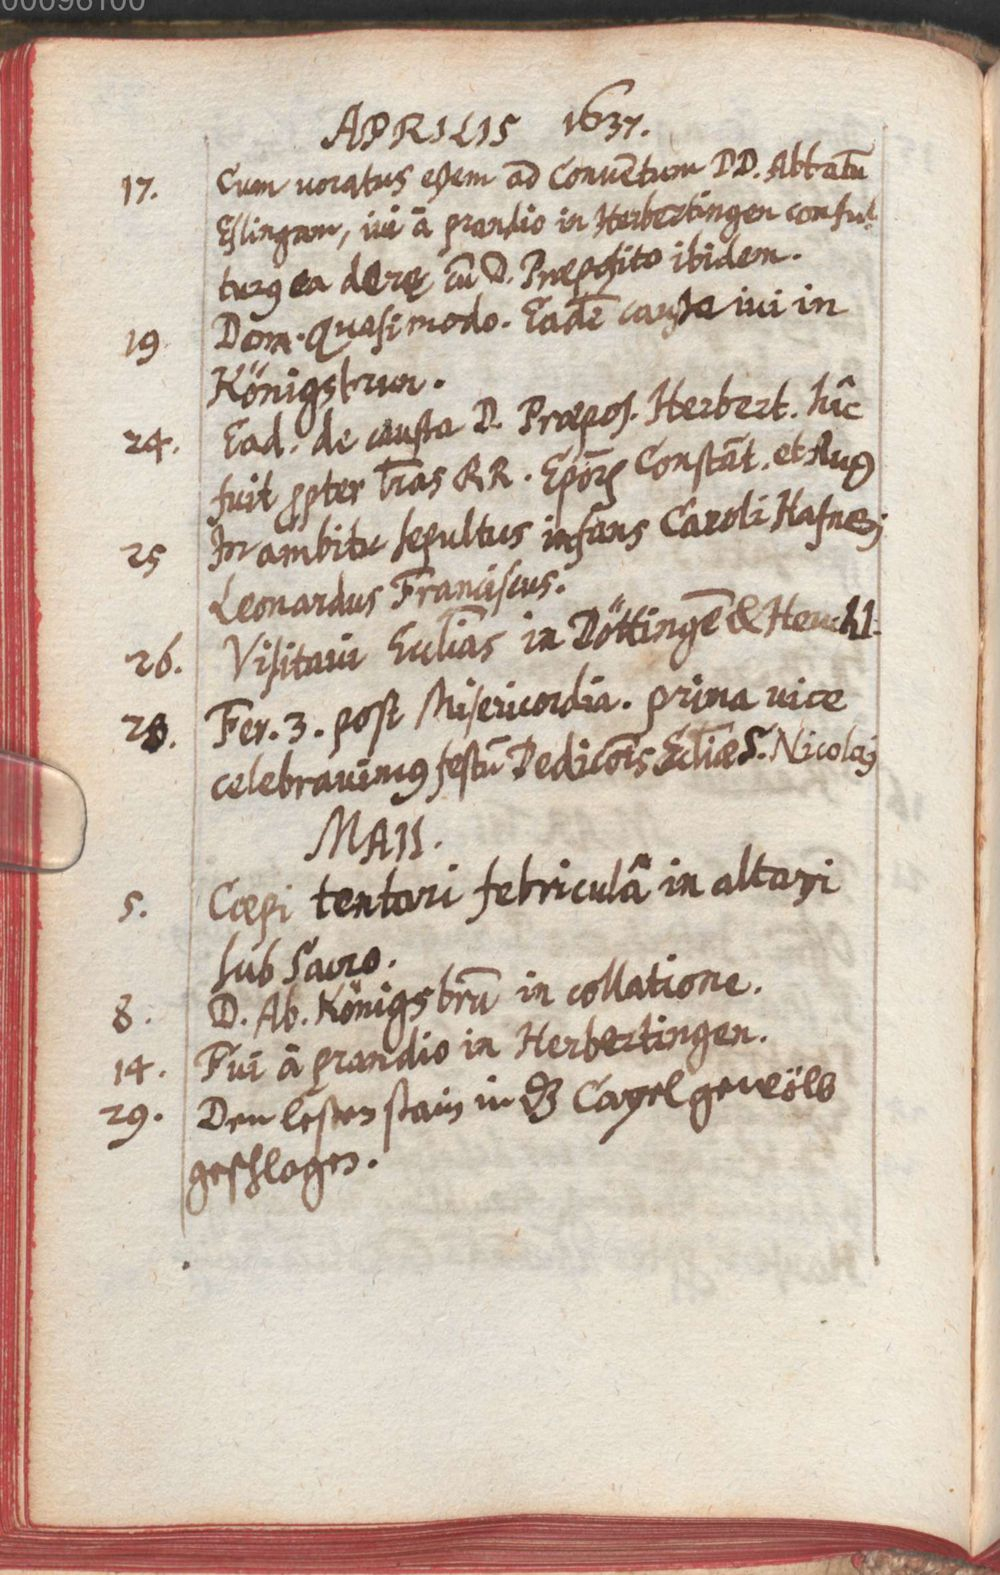 00098100
APRILIS 1637.
17. Cum uocatus eßem ad Conuētum DD. Abbatū
Eßlingam, iui â prandio in Herbertingen consul-
turꝰ ea de re cū D. Præposito ibidem.
19 Dom. Quasimodo. Eadē causa iui in
Königsbrun.
24. Ead. de causa D. Præpos. Herbert. hûc
fuit ꝓpter lr̄as RR. Epōrꝝ Constāt. et Aug
25 In ambitu sepultus infans Caroli Hafneri
Leonardus Franciscus.
26. Visitaui Eccliās in Döttingē & Heuchl.
28. Fer. 3. post Misericordia. prima uice
celebrauimꝰ festū Dedicōīs Eccliæ S. Nicolai
MAII.
5. Cœpi tentari febriculâ in altari
sub Sacro.
8. D. Ab. Königsbrū in collatione.
14. Fui â prandio in Herbertingen.
29. Den lesten stain in dz Capel geweölb
geschlagen.